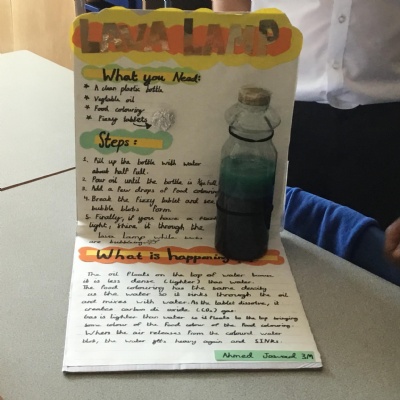 LAVA LAMP
What you Need:
* A clean plastic bottle
* Vegetable oil
* Food colouring
* Fizzy tablets
Steps:
1. Fill up the bottle with water
about half full.
2. Pour oil until the bottle is
3. Add a few drops of food colouring
4. Break the fizzy tablet and see
bubble blobs form
5. Finally, if you have a
light, shine it through the
lava lamp while
are bubbling.
What is happening
The oil floats on the top of water
it is less dense (lighter) than water.
The food colouring has the same density
as the water so it sinks through the oil
and mixes with water. As the tablet dissolve, it
creates carbon di oxide (CO2) gas.
Gas is lighter than water so it floats to the top bringing
some colour of the food colour of the food colouring.
When the air releases from the coloured water
blob, the water gets heavy again and SINKs.
Ahmed Jawad 3M